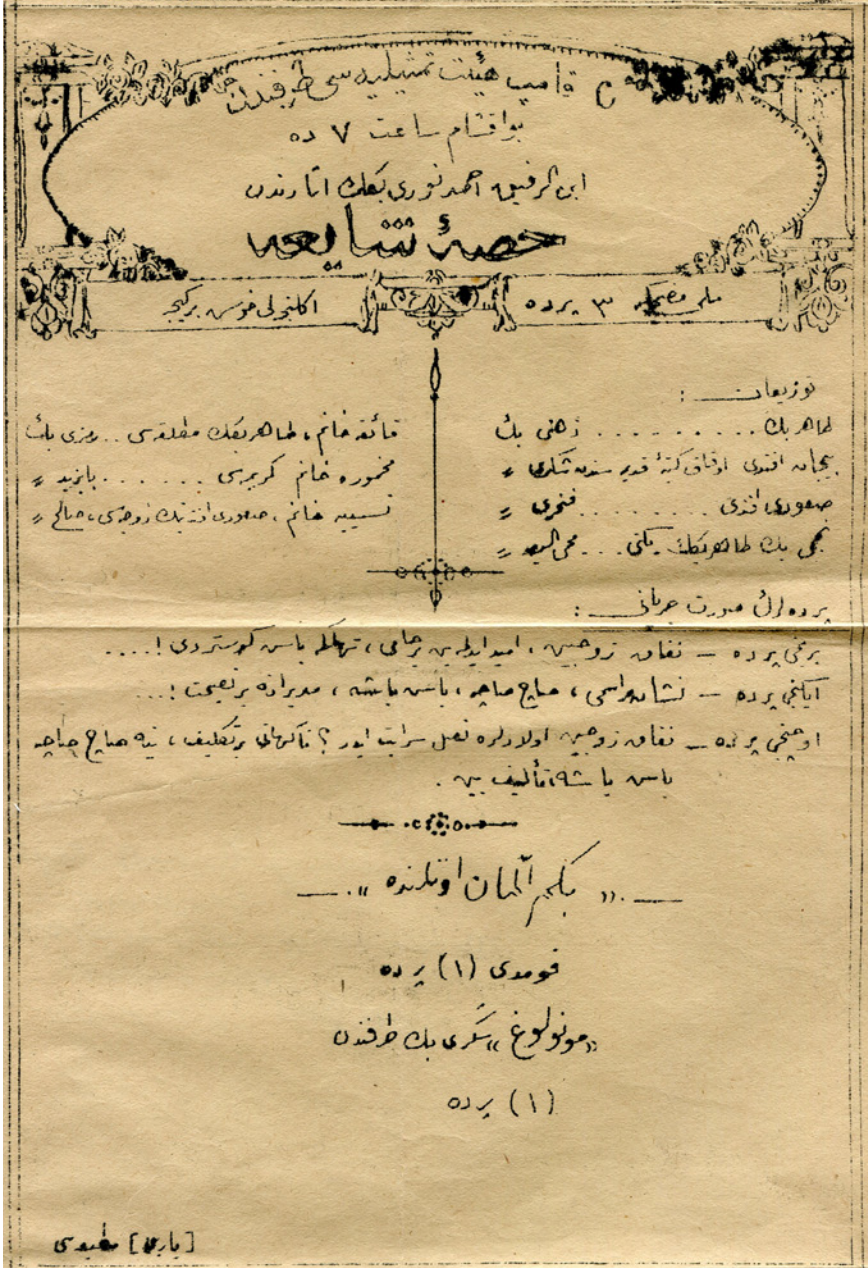 C قامپ هيئت تمثيليه سى طرفندن
بو اقشام ساعت ٧ ده
ابن الرفيق احمد نورى بك‌ك اثارندن
حصهٔ شايعه
ملى مضحكه ٣ پرده
اكلنجه‌لى خوش بر كيجه
توزيعات :
طاهر بك . . . . . . . . . . ذهنى بك
افندى اوقاف شكرى 〃
صبورى افندى . . . . . . . . فخرى 〃
بك طاهر بك‌ك يكنى . . . محى الدين 〃
فائقه خانم ، طاهر بك‌ك مطلقه‌سى . . رمزى بك
مخموره خانم كريمه‌سى . . . . . . بايزيد 〃
نسيبه خانم ، صبورى افندينك زوجه‌سى ، صالح 〃
پرده لرك صورت جريانى :
برنجى پرده — نفاق زوجين ، اميد ايديلمه‌ين ، تهلكه باش كوستردى ! . . . .
ايكنجى پرده — نشان مراسمى ، صاچ صاچه ، باش باشه ، مديرانه بر نصيحت ! . . .
اوچنجى پرده — نفاق زوجين اولادلره نصل سرايت ايدر ؟ ناكهانى بر تكليف ، ينه صاچ صاچه
باش باشه ، تأليف بين .
— .« بكم آلمان اوتلنده ».—
قومدى (١) پرده
«مونولوغ» شكرى بك طرفندن
(١) پرده
[يارين] مطبعه‌سى